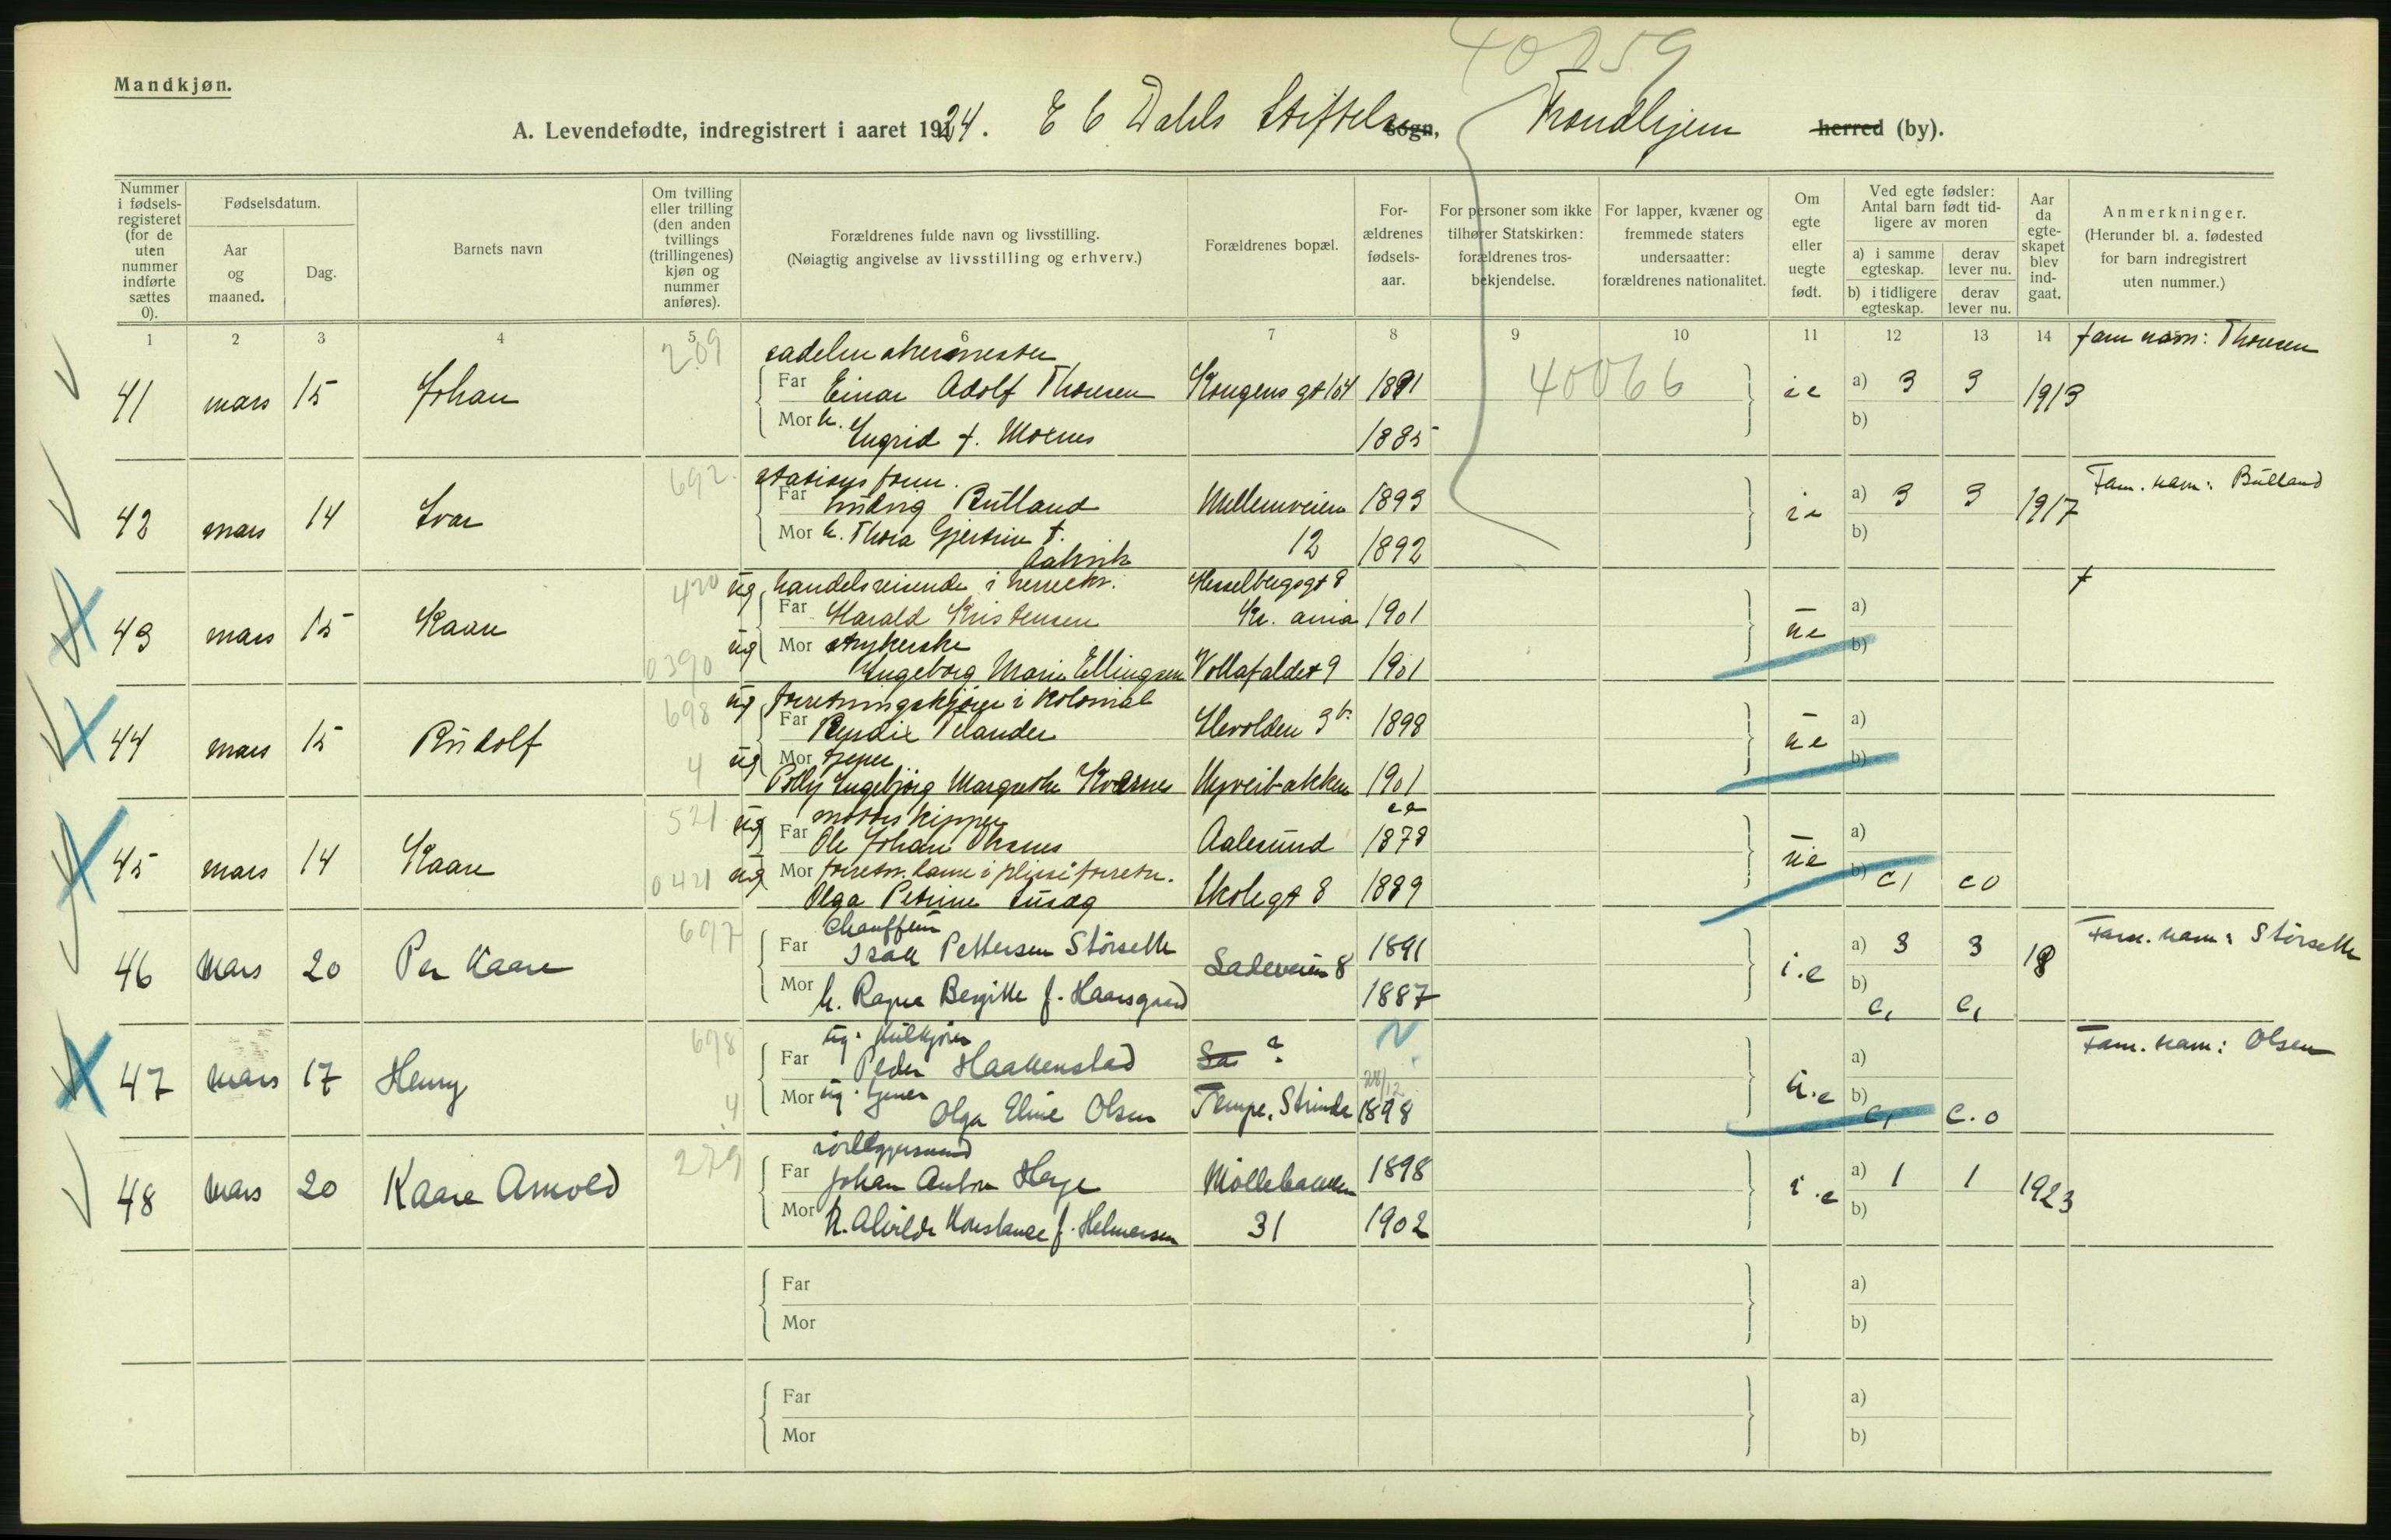 40259
Mandkjøn.
A. Levendefødte, indregistrert i aaret 1924. E C Dahls Stiftelse sogn, Trondhjem herred (by).
Nummer i fødsels-registeret (for de uten nummer indførte sættes 0).
Fødselsdatum.
Aar og maaned.
Dag.
Barnets navn
Om tvilling eller trilling (den anden tvillings (trillingenes) kjøn og nummer anføres).
Forældrenes fulde navn og livsstilling.
(Nøiagtig angivelse av livsstilling og erhverv.)
Forældrenes bopæl.
For-ældrenes fødsels-aar.
For personer som ikke tilhører Statskirken: forældrenes tros-bekjendelse.
For lapper, kvæner og fremmede staters undersaatter: forældrenes nationalitet.
Om egte eller uegte født.
Ved egte fødsler: Antal barn født tid-ligere av moren
a) i samme egteskap.
derav lever nu.
b) i tidligere egteskap.
derav lever nu.
Aar da egte-skapet blev ind-gaat.
Anmerkninger.
(Herunder bl. a. fødested for barn indregistrert uten nummer.)
1 2 3 4 5 6 7 8 9 10 11 12 13 14
fam navn: Thonsen
209 sadelmakermester
41 mars 15 Johan Far Einar Adolf Thonsen Kongens gt 104 1881 40066 ie a) 3 3 1913
Mor h. Ingrid f. Moenes 1885 b)
692 stasjonsform.
Fam. navn: Bulland
42 mars 14 Ivar Far Ludvig Bulland Mellemveien 1893 ie a) 3 3 1917
Mor h. Thora Gjertine f. 12 1892 b)
420 ug handelsreisende i Hesselbergsgt 8
43 mars 15 Kaare Far Harald Kristensen Kr. ania 1901 ue a)
ug Mor strykerske b)
0390 Ingeborg Marie Ellingsen Vollafaldet 9 1901
698 ug forretningskjører i kolonial
44 mars 15 Rudolf Far Telander Ilevolden 1898 ue a)
4 ug Mor tjener b)
Polly Ingebjørg Margrethe Kvernes Nyveibakken 1901
521 ug motorskipper ca
45 mars 14 Kaare Far Ole Johan Aalesund 1878 ue a)
0421 ug Mor forretn. dame i forretn. b) c1 c0
Olga Petrine Skolegt 8 1889
697 Chauffeur
Fam. navn: Størseth
46 Mars 20 Per Kaare Far Isak Pettersen Størseth Ladeveien 8 1891 i.e a) 3 3 18
Mor h. Ragna Bergitte f. Haarsgaard 1887 b) c1 c1
698 ug. Kulkjører N
Fam. navn: Olsen
47 Mars 17 Henry Far Peder Haakenstad ? a)
4 Mor ug. tjener 28/12 u.e b) c1 c.0
Olga Eline Olsen Tempe, Strinda 1898
279 rørlæggersvend
48 Mars 20 Kaare Arnold Far Johan Anton Høye Møllebakken 1898 i.e a) 1 1 1923
Mor h. Alvilde Konstance f. Helmersen 31 1902 b)
Far a)
Mor b)
Far a)
Mor b)